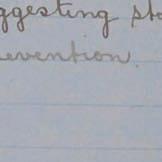 ggesting st
evention